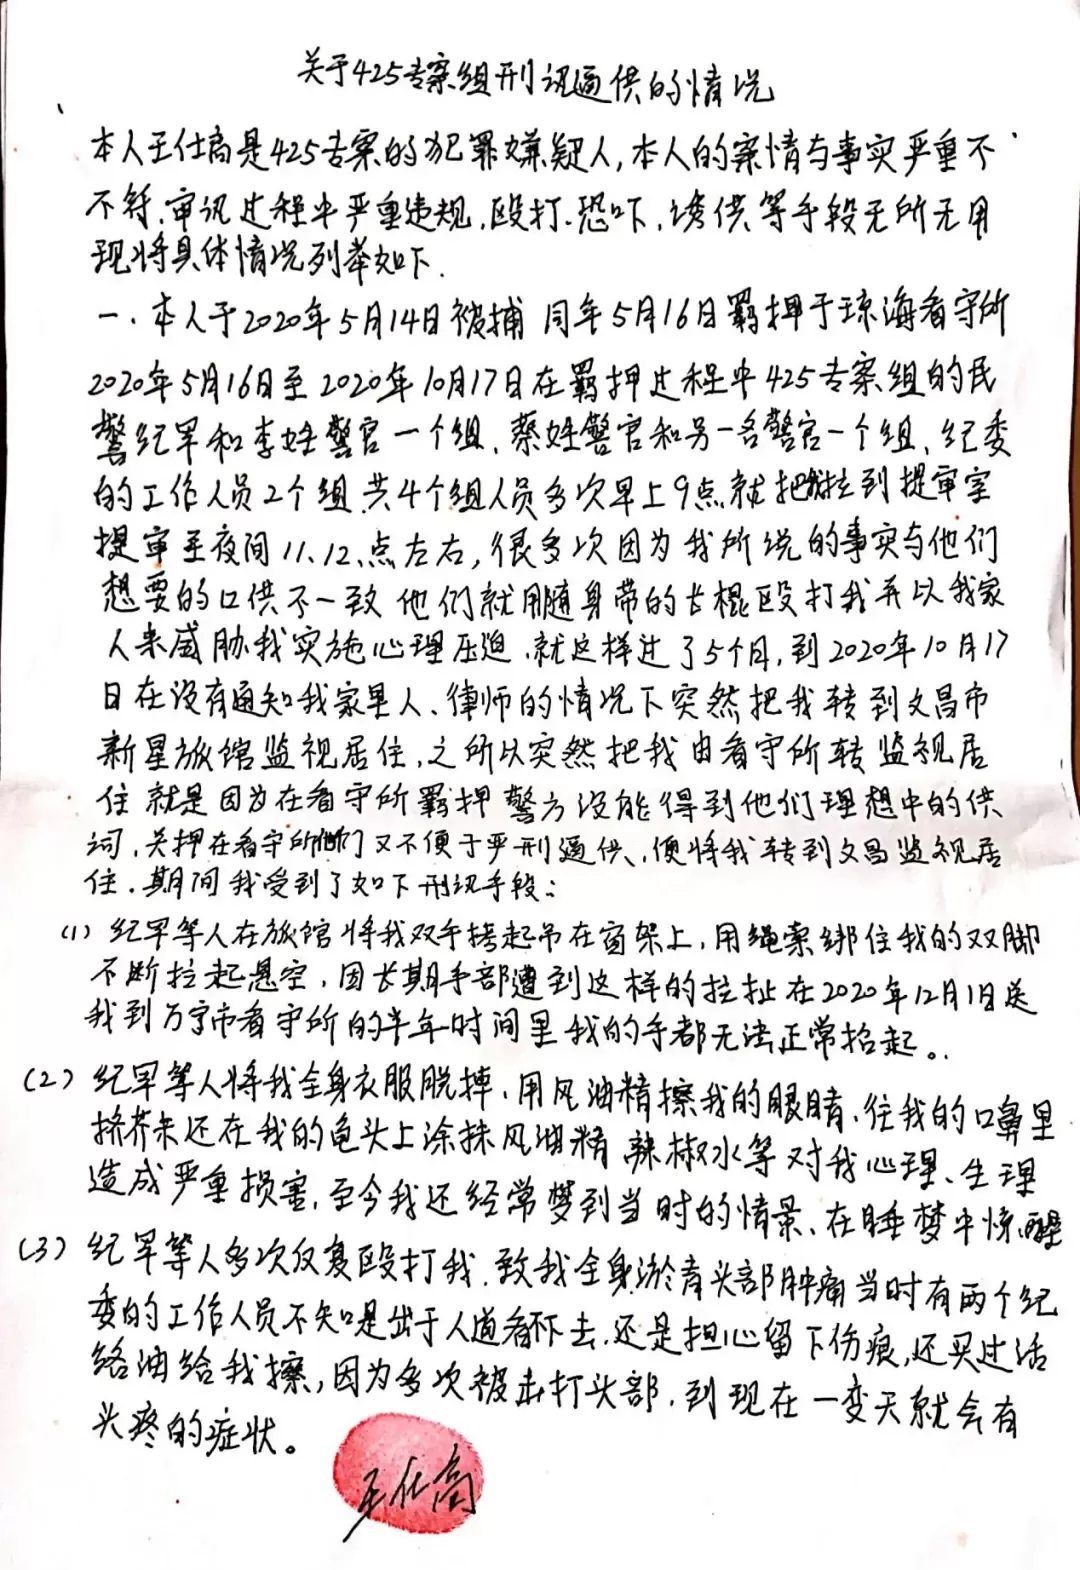 关于425专案组刑讯逼供的情况
本人王仕高是425专案的犯罪嫌疑人,本人的案情与事实严重不
不符.审讯过程中严重违规,殴打.恐吓,诱供等手段无所无用
现将具体情况列举如下.
一、本人于2020年5月14日被捕 同年5月16日羁押于琼海看守所
2020年5月16日至2020年10月17日在羁押过程中425专案组的民
警纪罕和李姓警官一个组、蔡姓警官和另一名警官一个组、纪委
的工作人员2个组.共4个组人员多次早上9点就把我拉到提审室
提审至夜间11.12.点左右,很多次因为我所说的事实与他们
想要的口供不一致 他们就用随身带的长棍殴打我并以我家
人来威胁我实施心理压迫.就这样过了5个月,到2020年10月17
日在没有通知我家里人、律师的情况下突然把我转到文昌市
新星旅馆监视居住,之所以突然把我由看守所转监视居
住就是因为在看守所羁押警方没能得到他们理想中的供
词.关押在看守所他们又不便于严刑逼供、便将我转到文昌监视居
住.期间我受到了如下刑讯手段:
(1)纪罕等人在旅馆将我双手拷起吊在窗架上,用绳索绑住我的双脚
不断拉起悬空,因长期手部遭到这样的拉扯在2020年12月1日送
我到万宁市看守所的半年时间里我的手都无法正常抬起。
(2)纪罕等人将我全身衣服脱掉、用风油精擦我的眼睛、往我的口鼻里
挤芥末还在我的龟头上涂抹风油精 辣椒水等对我心理、生理
造成严重损害,至今我还经常梦到当时的情景、在睡梦中惊醒
(3)纪罕等人多次反复殴打我.致我全身淤青头部肿痛当时有两个纪
委的工作人员不知是出于人道看不下去.还是担心留下伤痕,还买过活
络油给我擦,因为多次被击打头部.到现在一变天就会有
头疼的症状。
王仕高